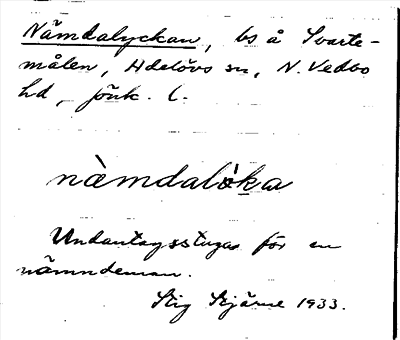 Nämdalyckan, bs å Svarte-
målen, Adelövs sn, N. Vedbo
hd, Jönk. l.
nämdalöka
Undantagsstuga för en
nämndeman.
Stig Bjärne 1933.